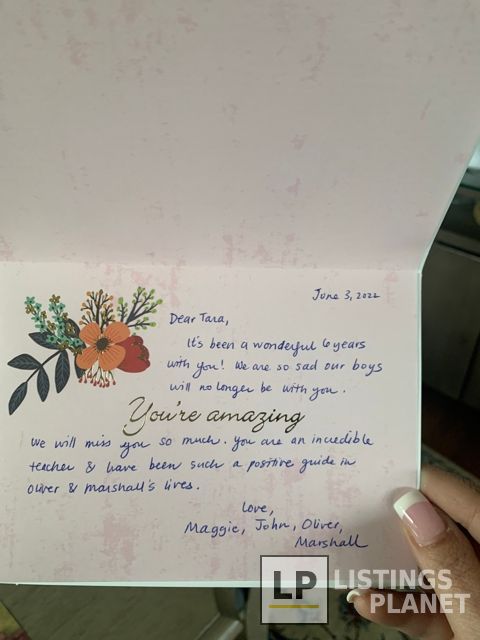 June 3, 2022
Dear Tara,
It's been a wonderful 6 years
with you! We are so sad our boys
will no longer be with you.
You're amazing
We will miss you so much. You are an incredible
teacher & have been such a positive guide in
Oliver & Marshall's lives.
Love,
Maggie, John, Oliver,
Marshall
LP LISTINGS
PLANET